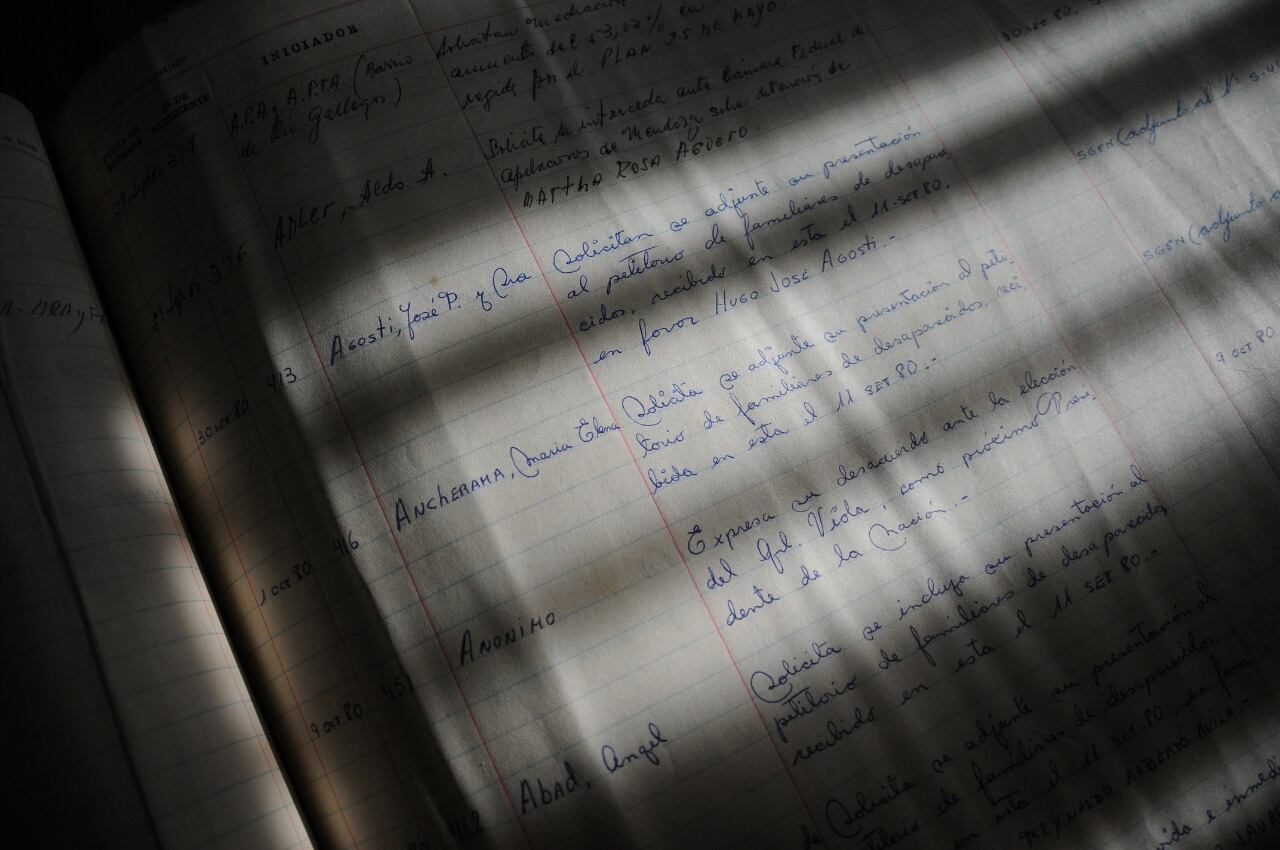 INICIADOR
FECHA DE
Nº DE
EXPEDIENTE
A.P.A y A.P.TA. (Barrio
de Río Gallegos)
Solicitan mediación
aumento del 53,07% en
regida por el PLAN 25 DE MAYO.
30 SET 80
396
ADLER, Aldo A.
Solicita se interceda ante Cámara Federal de
Apelaciones de Mendoza sobre detención de
MARTHA ROSA AGÜERO.
30 SET 80
413
AGosti, José P. y Sra
Solicitan se adjunte su presentación
al petitorio de familiares de desapare
cidos, recibido en esta el 11.SET.80.
en favor HUGO JOSÉ AGosti.-
SGPN (adjunto al Nº
1 OCT 80
416
ANCHERAMA, María Elena
Solicita se adjunte su presentación al peti-
torio de familiares de desaparecidos, reci
bida en esta el 11 SET 80.-
SGPN (adjunto a
9 OCT 80
451
ANONIMO
Expresa su desacuerdo ante la elección
del Gral. Viola, como próximo Presi-
dente de la Nación.-
9 OCT 80
462
Abad, Angel
Solicita se incluya su presentación al
petitorio de familiares de desaparecidos
recibido en esta el 11 SET 80.-
de
Solicita se adjunte su presentación al
petitorio de familiares de desaparecidos
en esta el 11 SET. 80, en favor
REYNALDO ALBERTO AVILA.-
vida e inmedi